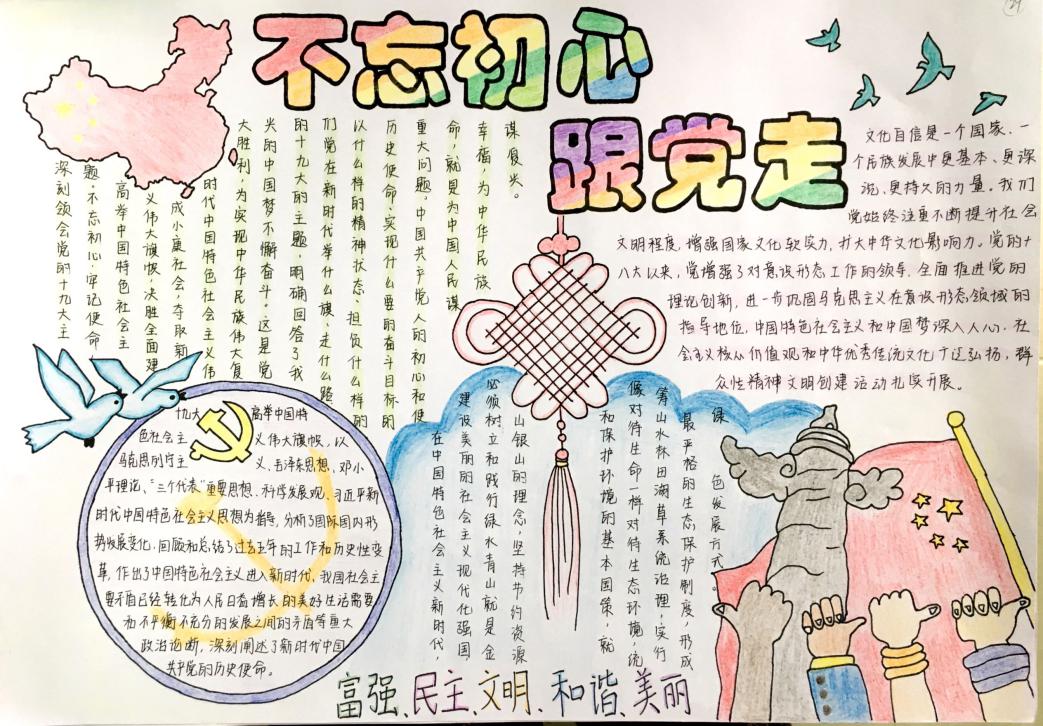 不忘初心
跟党走
深刻领会党的十九大主
题,不忘初心,牢记使命,
高举中国特色社会主
义伟大旗帜,决胜全面建
成小康社会,夺取新
时代中国特色社会主义伟
大胜利,为实现中华民族伟大复
兴的中国梦不懈奋斗。这是党
的十九大的主题,明确回答了我
们党在新时代举什么旗、走什么路、
以什么样的精神状态、担负什么样的
历史使命、实现什么要的奋斗目标的
重大问题。中国共产党人的初心和使
命,就是为中国人民谋
幸福,为中华民族
谋复兴。
文化自信是一个国家、一
个民族发展中更基本、更深
沉、更持久的力量。我们
党始终注重不断提升社会
文明程度,增强国家文化软实力,扩大中华文化影响力。党的十
八大以来,党增强了对意识形态工作的领导,全面推进党的
理论创新,进一步巩固马克思主义在意识形态领域的
指导地位,中国特色社会主义和中国梦深入人心,社
会主义核心价值观和中华优秀传统文化广泛弘扬,群
众性精神文明创建活动扎实开展。
十九大高举中国特
色社会主义伟大旗帜,以
马克思列宁主义、毛泽东思想、邓小
平理论、“三个代表”重要思想、科学发展观、习近平新
时代中国特色社会主义思想为指导,分析了国际国内形
势发展变化,回顾和总结了过去五年的工作和历史性变
革,作出了中国特色社会主义进入新时代、我国社会主
要矛盾已经转化为人民日益增长的美好生活需要
和不平衡不充分的发展之间的矛盾等重大
政治论断,深刻阐述了新时代中国
共产党的历史使命。
在中国特色社会主义新时代,
建设美丽的社会主义现代化强国,
必须树立和践行绿水青山就是金
山银山的理念,坚持节约资源
和保护环境的基本国策,就
像对待生命一样对待生态环境,统
筹山水林田湖草系统治理,实行
最严格的生态保护制度,形成
绿色发展方式。
富强、民主、文明、和谐、美丽